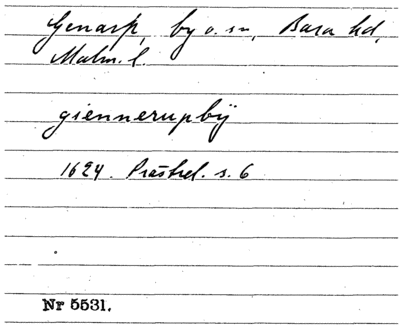 Genarp, by o. sn, Bara hd,
Malm. l.
giennerupbÿ
1624. Prästrel. s. 6
Nr 5531.